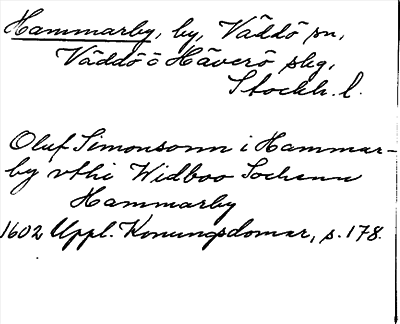 Hammarby, by, Väddö sn,
Väddö ö Häverö skg,
Stockh. l.
Oluf Simonsonn i Hammar-
by vthi Widboo Sochenn
Hammarby
1602 Uppl. Konungsdomar, s. 178.